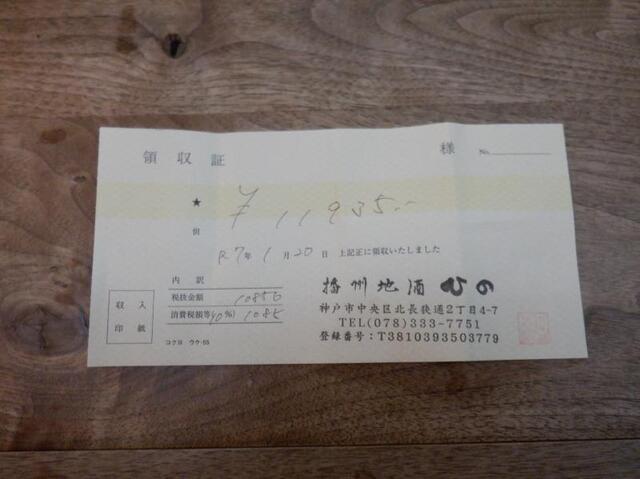 領収証 様 No.
★ ¥11935.-
但
R7年1月20日 上記正に領収いたしました
内訳
税抜金額 10850
消費税額等(10%) 1085
収入印紙
コクヨ ウケ-55
播州地酒 ひの
神戸市中央区北長狭通2丁目4-7
TEL(078)333-7751
登録番号:T3810393503779